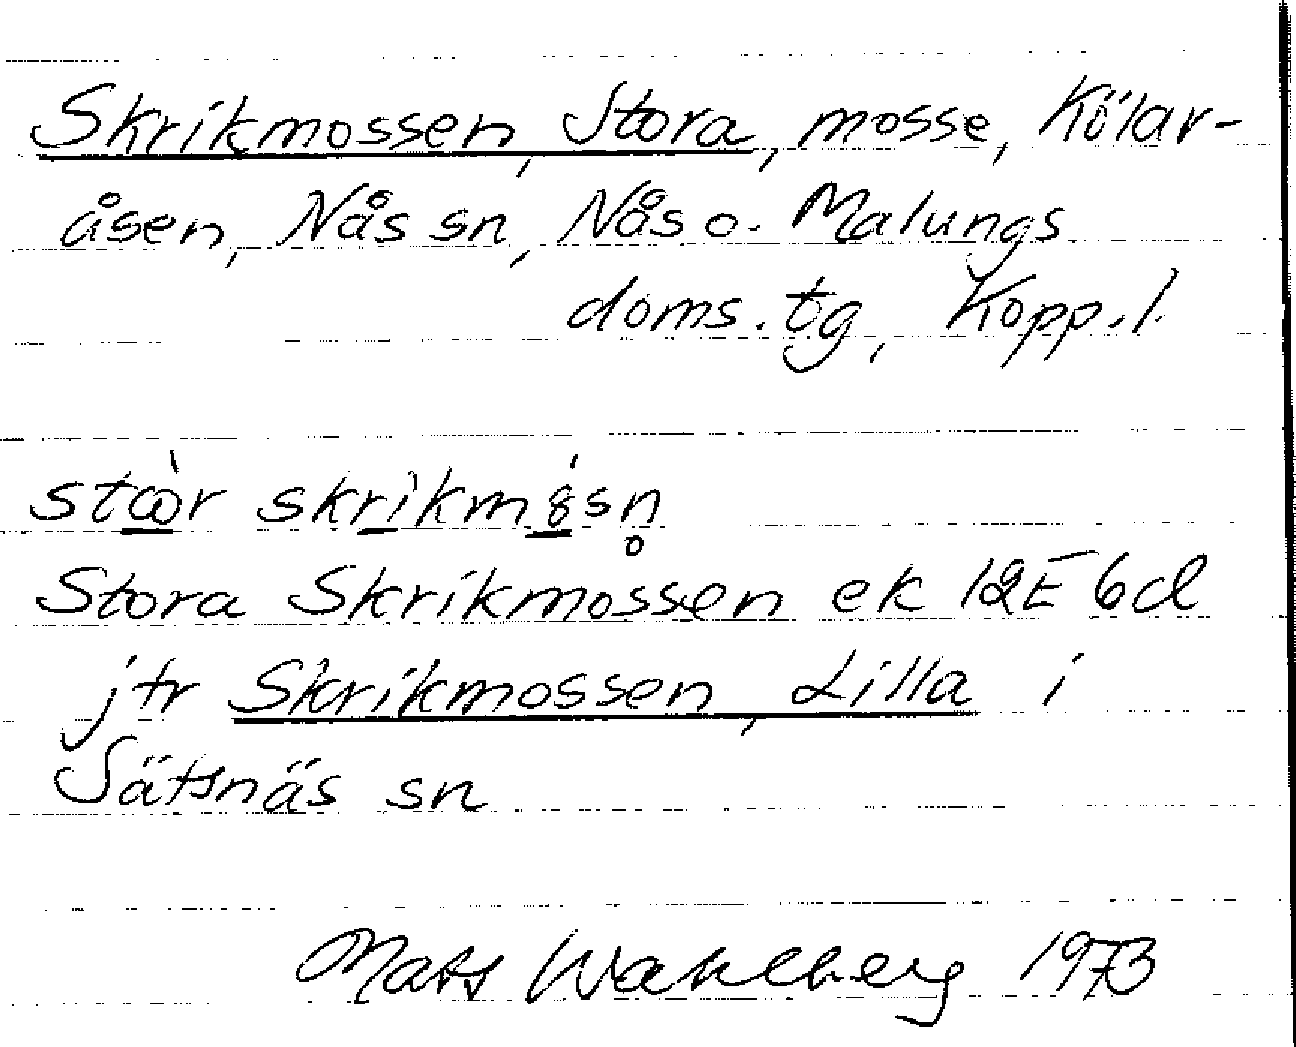 Skrikmossen, Stora, mosse, Kölar-
åsen, Nås sn, Nås o. Malungs
doms. tg, Kopp. l.
skrikm8sn̥
Stora Skrikmossen ek 12E 6d
jfr Skrikmossen, Lilla i
Sätsnäs sn
Mats Wahlberg 1973